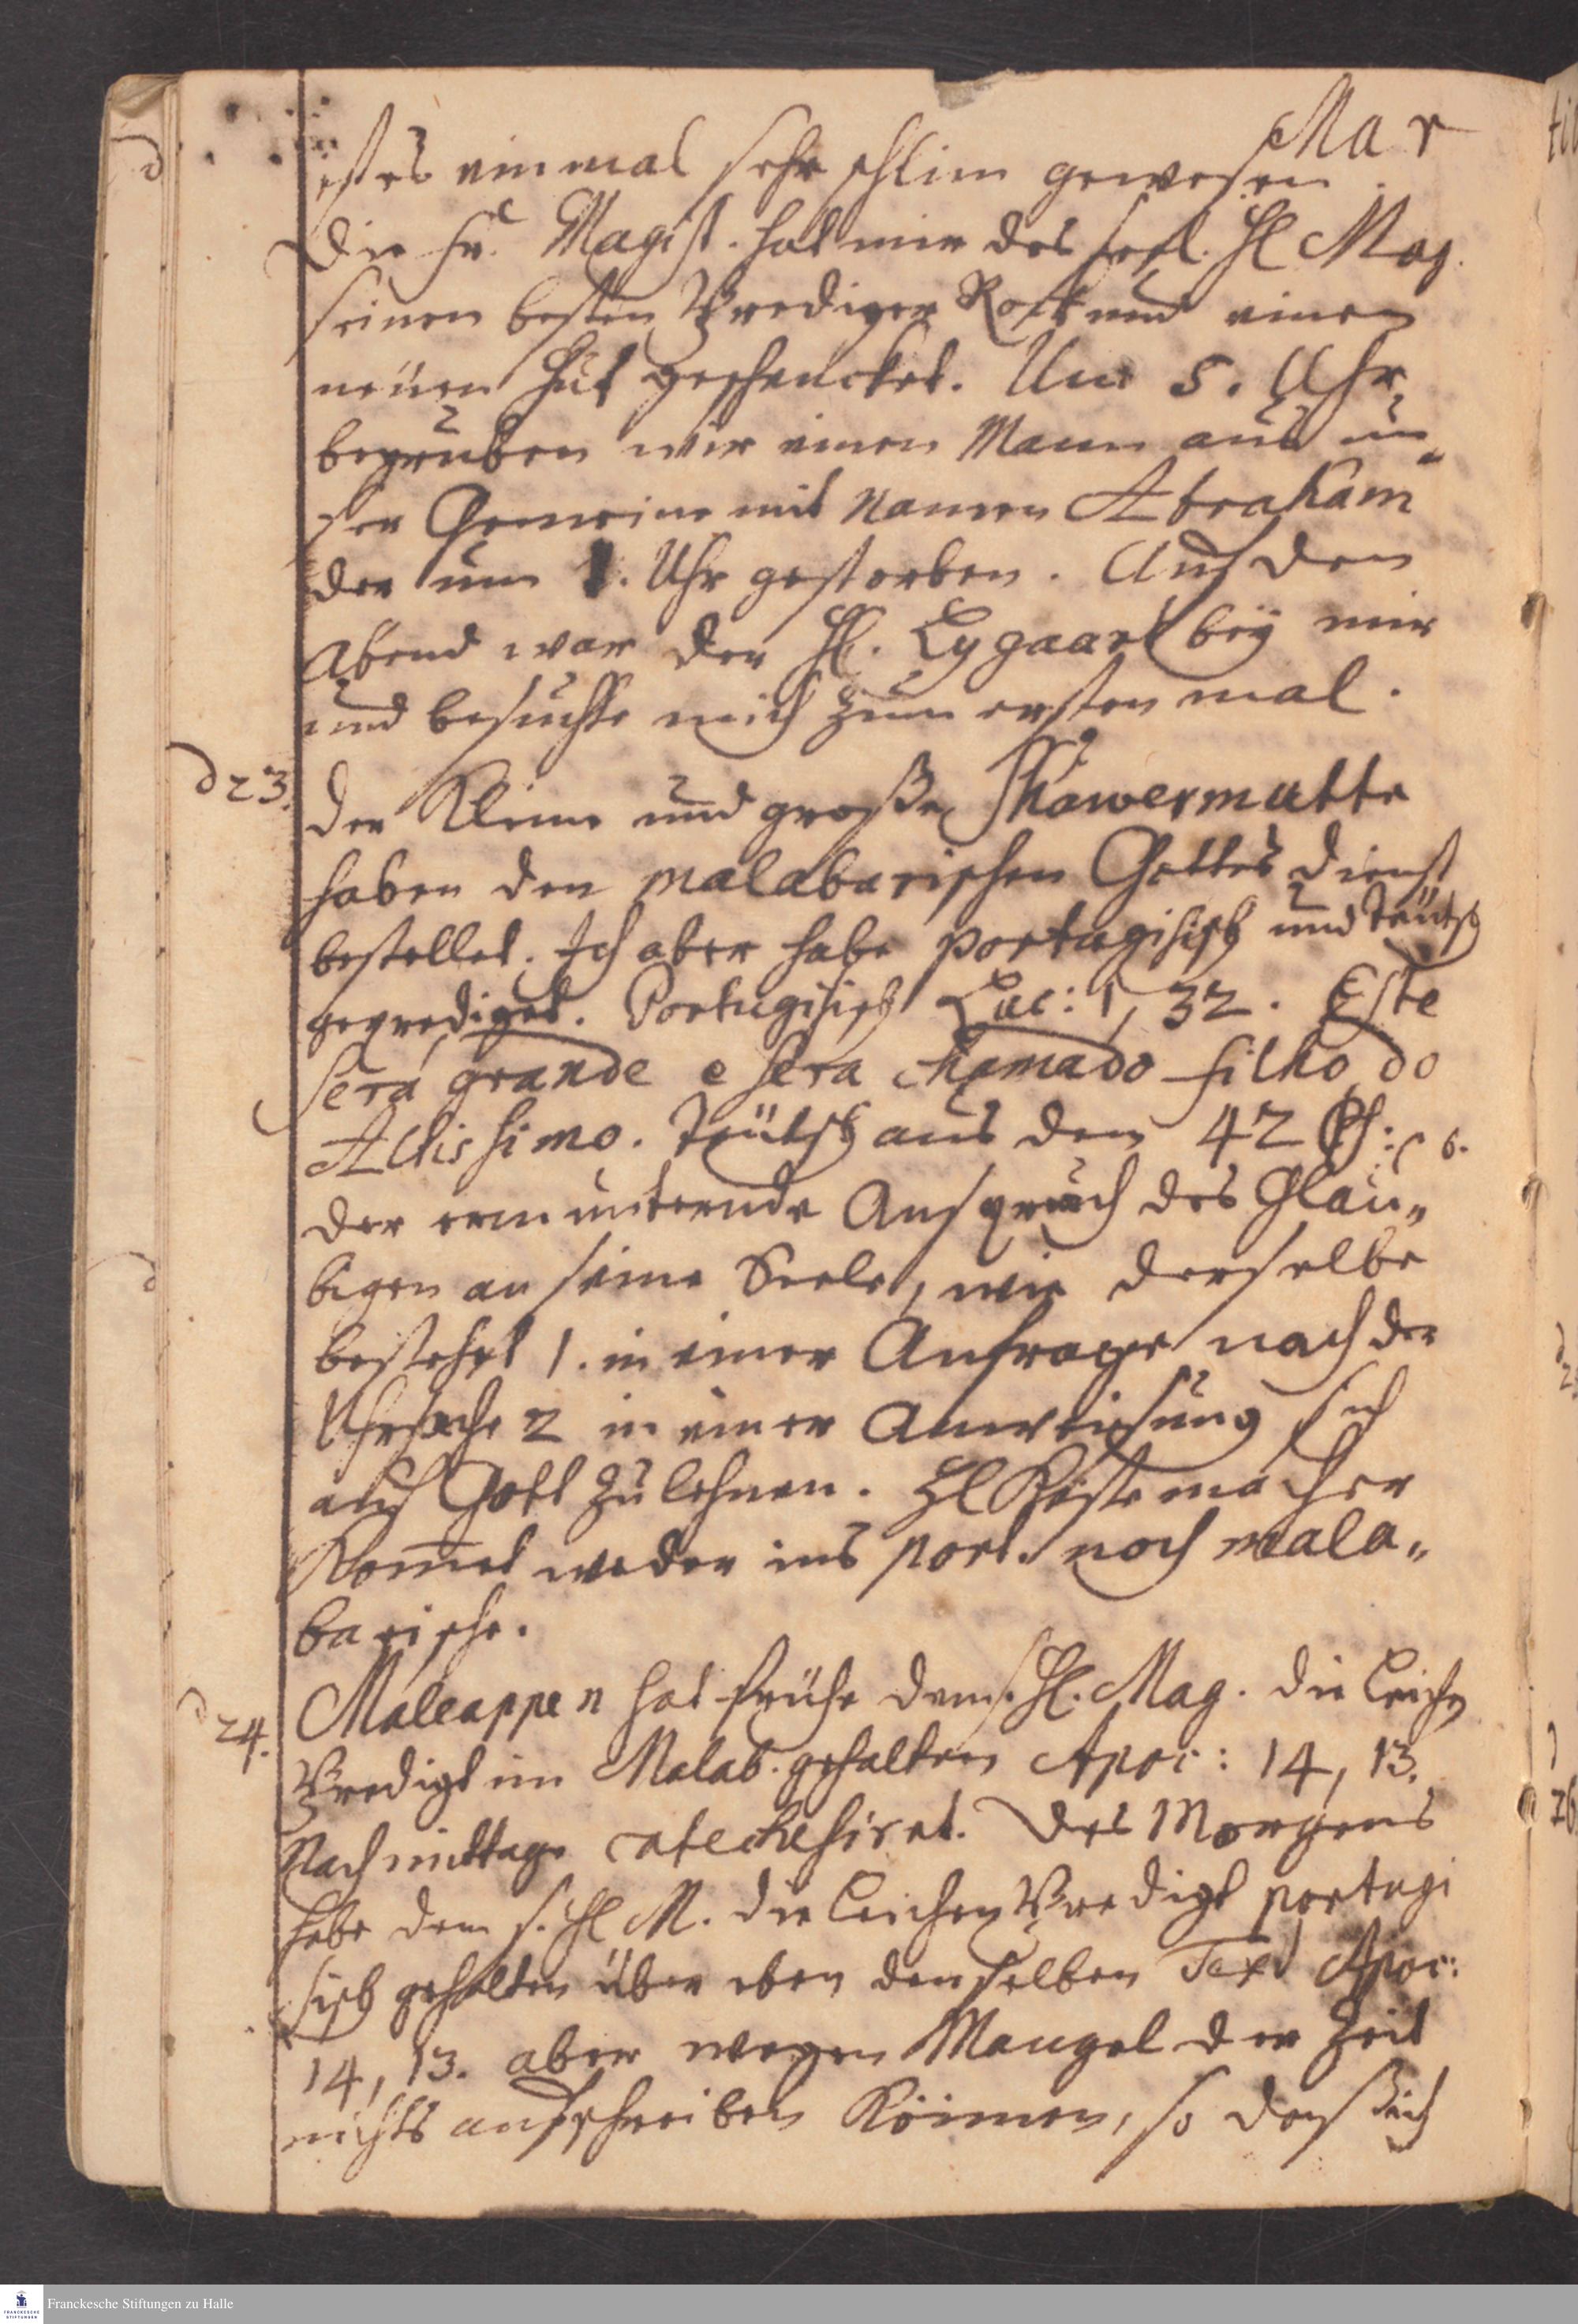 Mar
ist es einmal sehr schlim gewesen.
Die Fr. Magist. hat mir des seel. Hl Mag.
seinen besten Prediger Rock und einen
neuen Hut geschencket. Um 5. Uhr
begruben wir einen Mann aus un„
ser Gemeine mit Namen Abraham
der um 1. Uhr gestorben. Auf den
Abend war der Hl. Lygaard bey mir
und besuchte mich zum ersten mal.
d 23.
Der Kleine und große Thäwermutte
haben den malabarischen Gottes dienst
bestellet. Ich aber habe portugisisch und teutsch
geprediget. Portugisisch Luc: 1, 32. Este
será grande e sera chamado filho do
Altissimo. Teütsch aus dem 42 Ps:
der ermunternde Anspruch des Gläu„
bigen an seine Seele, wie derselbe
bestehet 1. in einer Anfrage nach der
Uhrsache 2 in einer Anweisung sich
auf Gott zu lehnen. Hl Kistemacher
kommet weder ins port. noch mala„
barische.
d 24.
Maleappen hat frühe dem s. Hl. Mag. die Leichen
Predigt im Malab. gehalten Apoc: 14, 13.
Nachmittage catechesiret. Des Morgens
habe dem s. Hl M. die Leichen Predigt portugi
sisch gehalten über eben denselben Text Apoc:
14, 13. aber wegen Mangel der Zeit
nichts aufschreiben können, so daß ich
Franckesche Stiftungen zu Halle